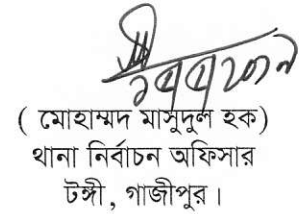 ( মোহাম্মদ মাসুদুল হক)
থানা নির্বাচন অফিসার
টঙ্গী, গাজীপুর।